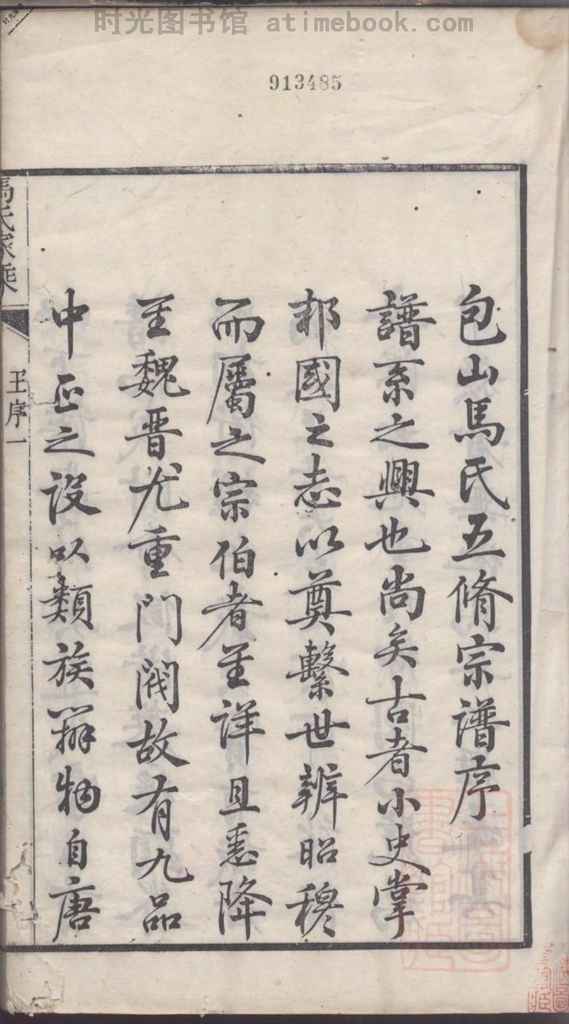 时光图书馆 atimebook.com
913485
包山馬氏五脩宗譜序
譜系之興也尚矣古者小史掌
邦國之志以奠繫世辨昭穆
而屬之宗伯者至詳且悉降
至魏晉尤重門閥故有九品
中正之設以類族辨物自唐
馬氏家乘
王序一